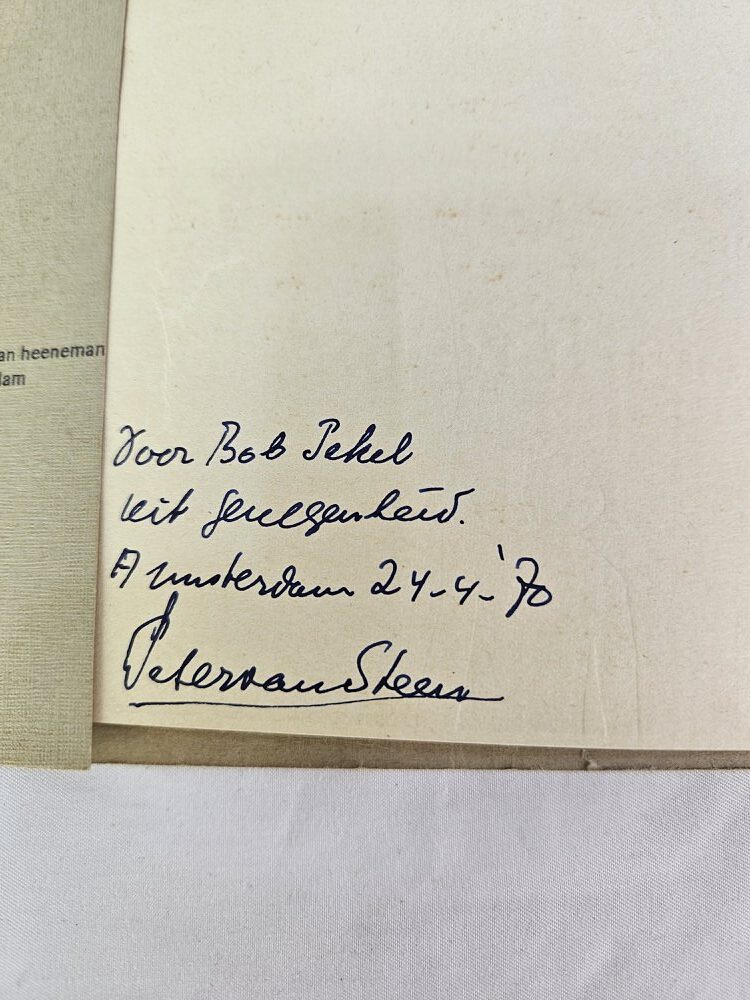 an heeneman
dam
Voor Bob Pekel
uit genegenheid.
Amsterdam 24-4-'70
Peter van Steen